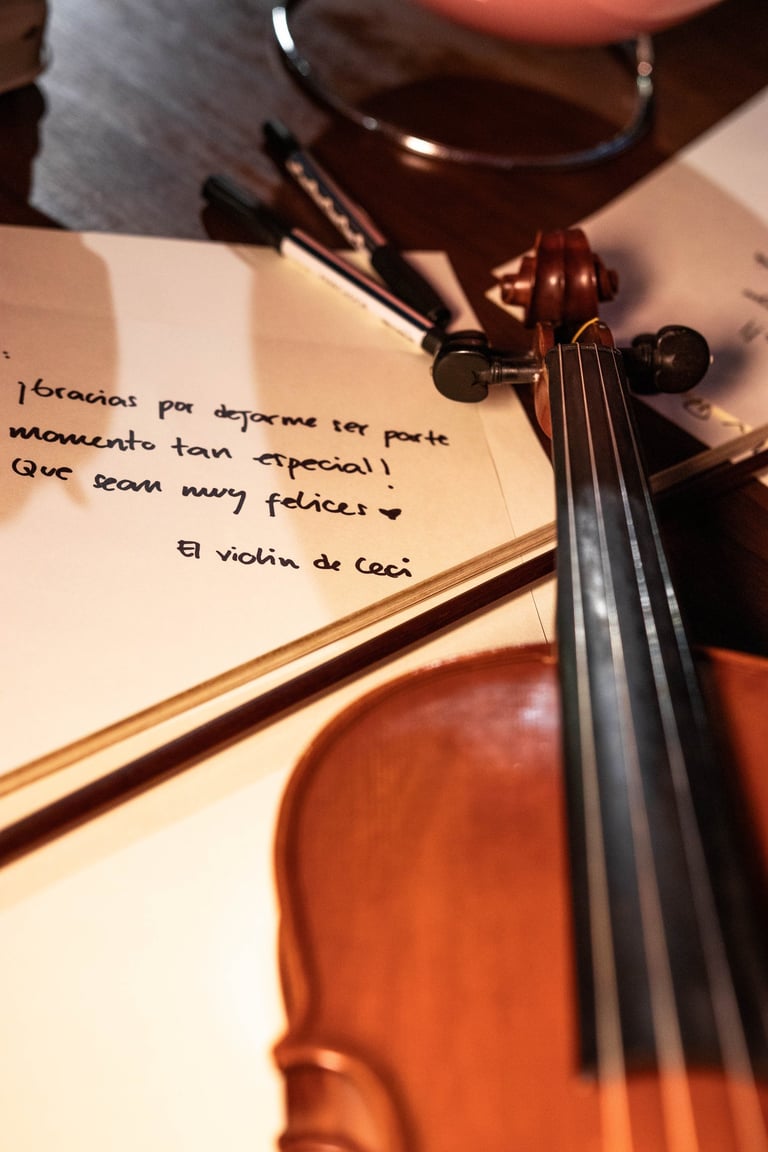 :
¡Gracias por dejarme ser parte
momento tan especial!
Que sean muy felices ♥
El violin de Ceci